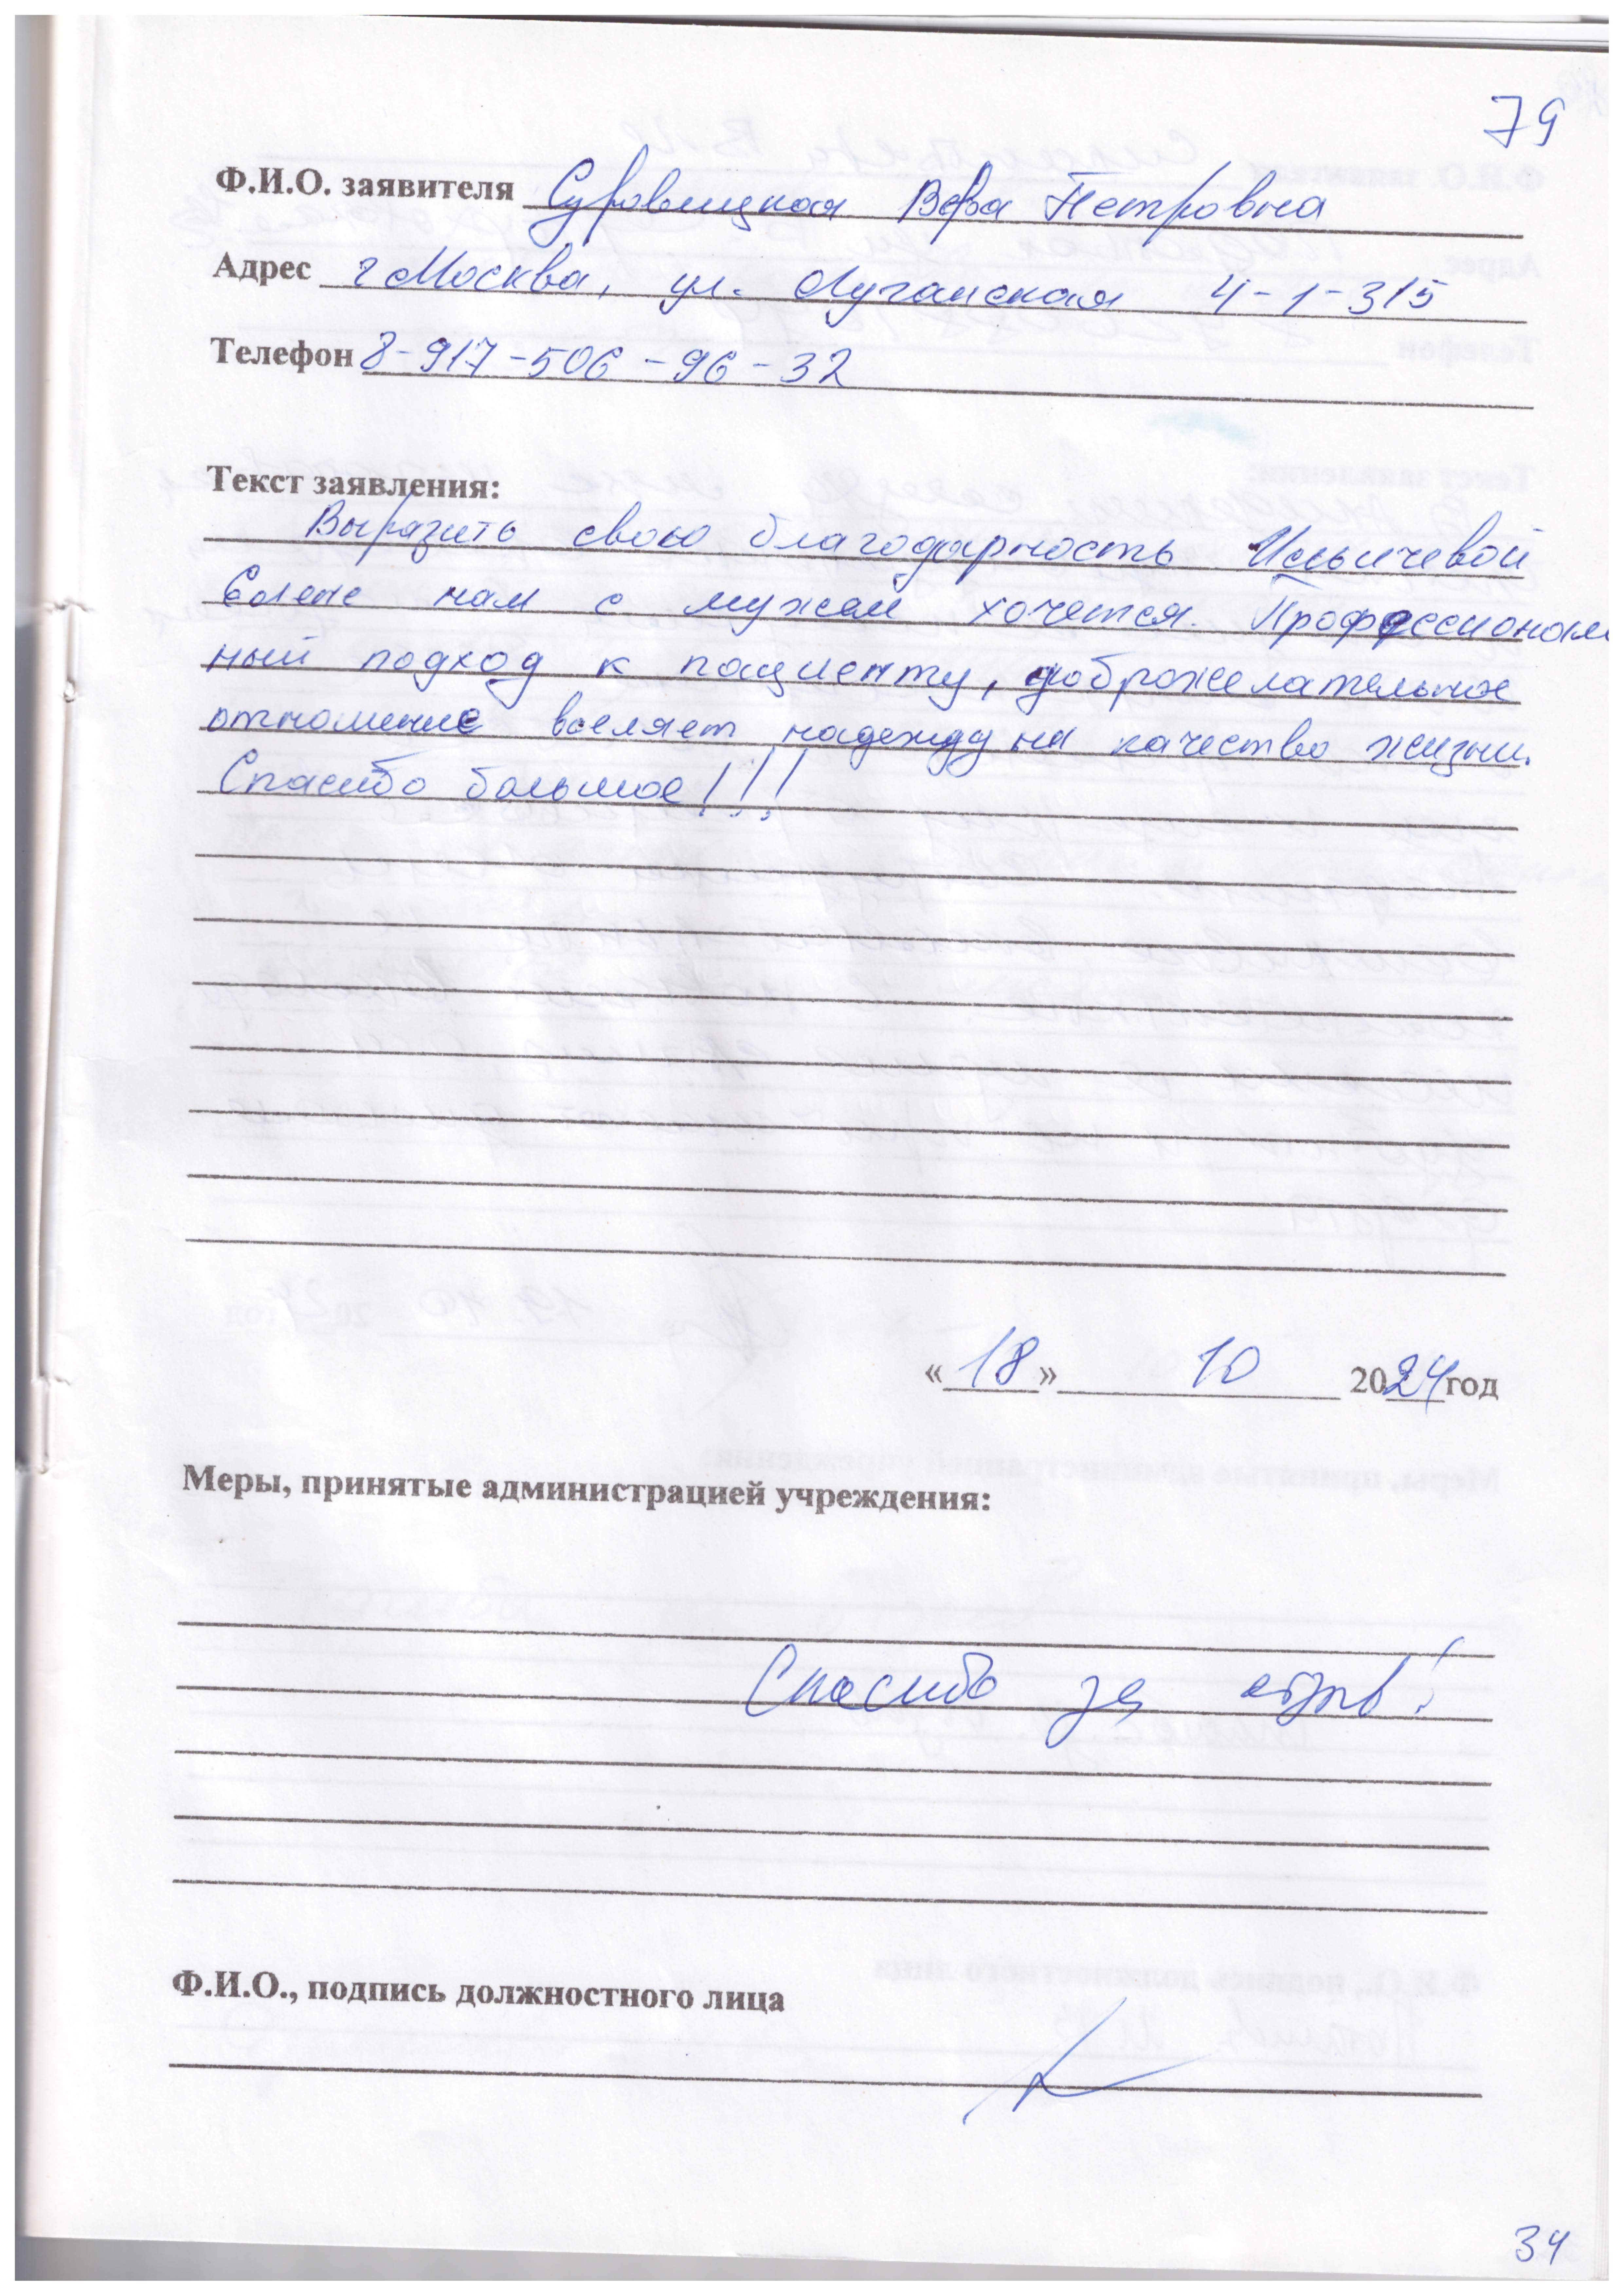 79
Ф.И.О. заявителя Суровицкая Вера Петровна
Адрес г Москва, ул. Луганская 4-1-315
Телефон 8-917-506-96-32
Текст заявления:
Выразить свою благодарность Ильичевой
Елене нам с мужем хочется. Профессиональ
ный подход к пациенту, доброжелательное
отношение вселяет надежду на качество жизни.
Спасибо большое!!!
«18» 10 2024 год
Меры, принятые администрацией учреждения:
Спасибо за отзыв!
Ф.И.О., подпись должностного лица
34